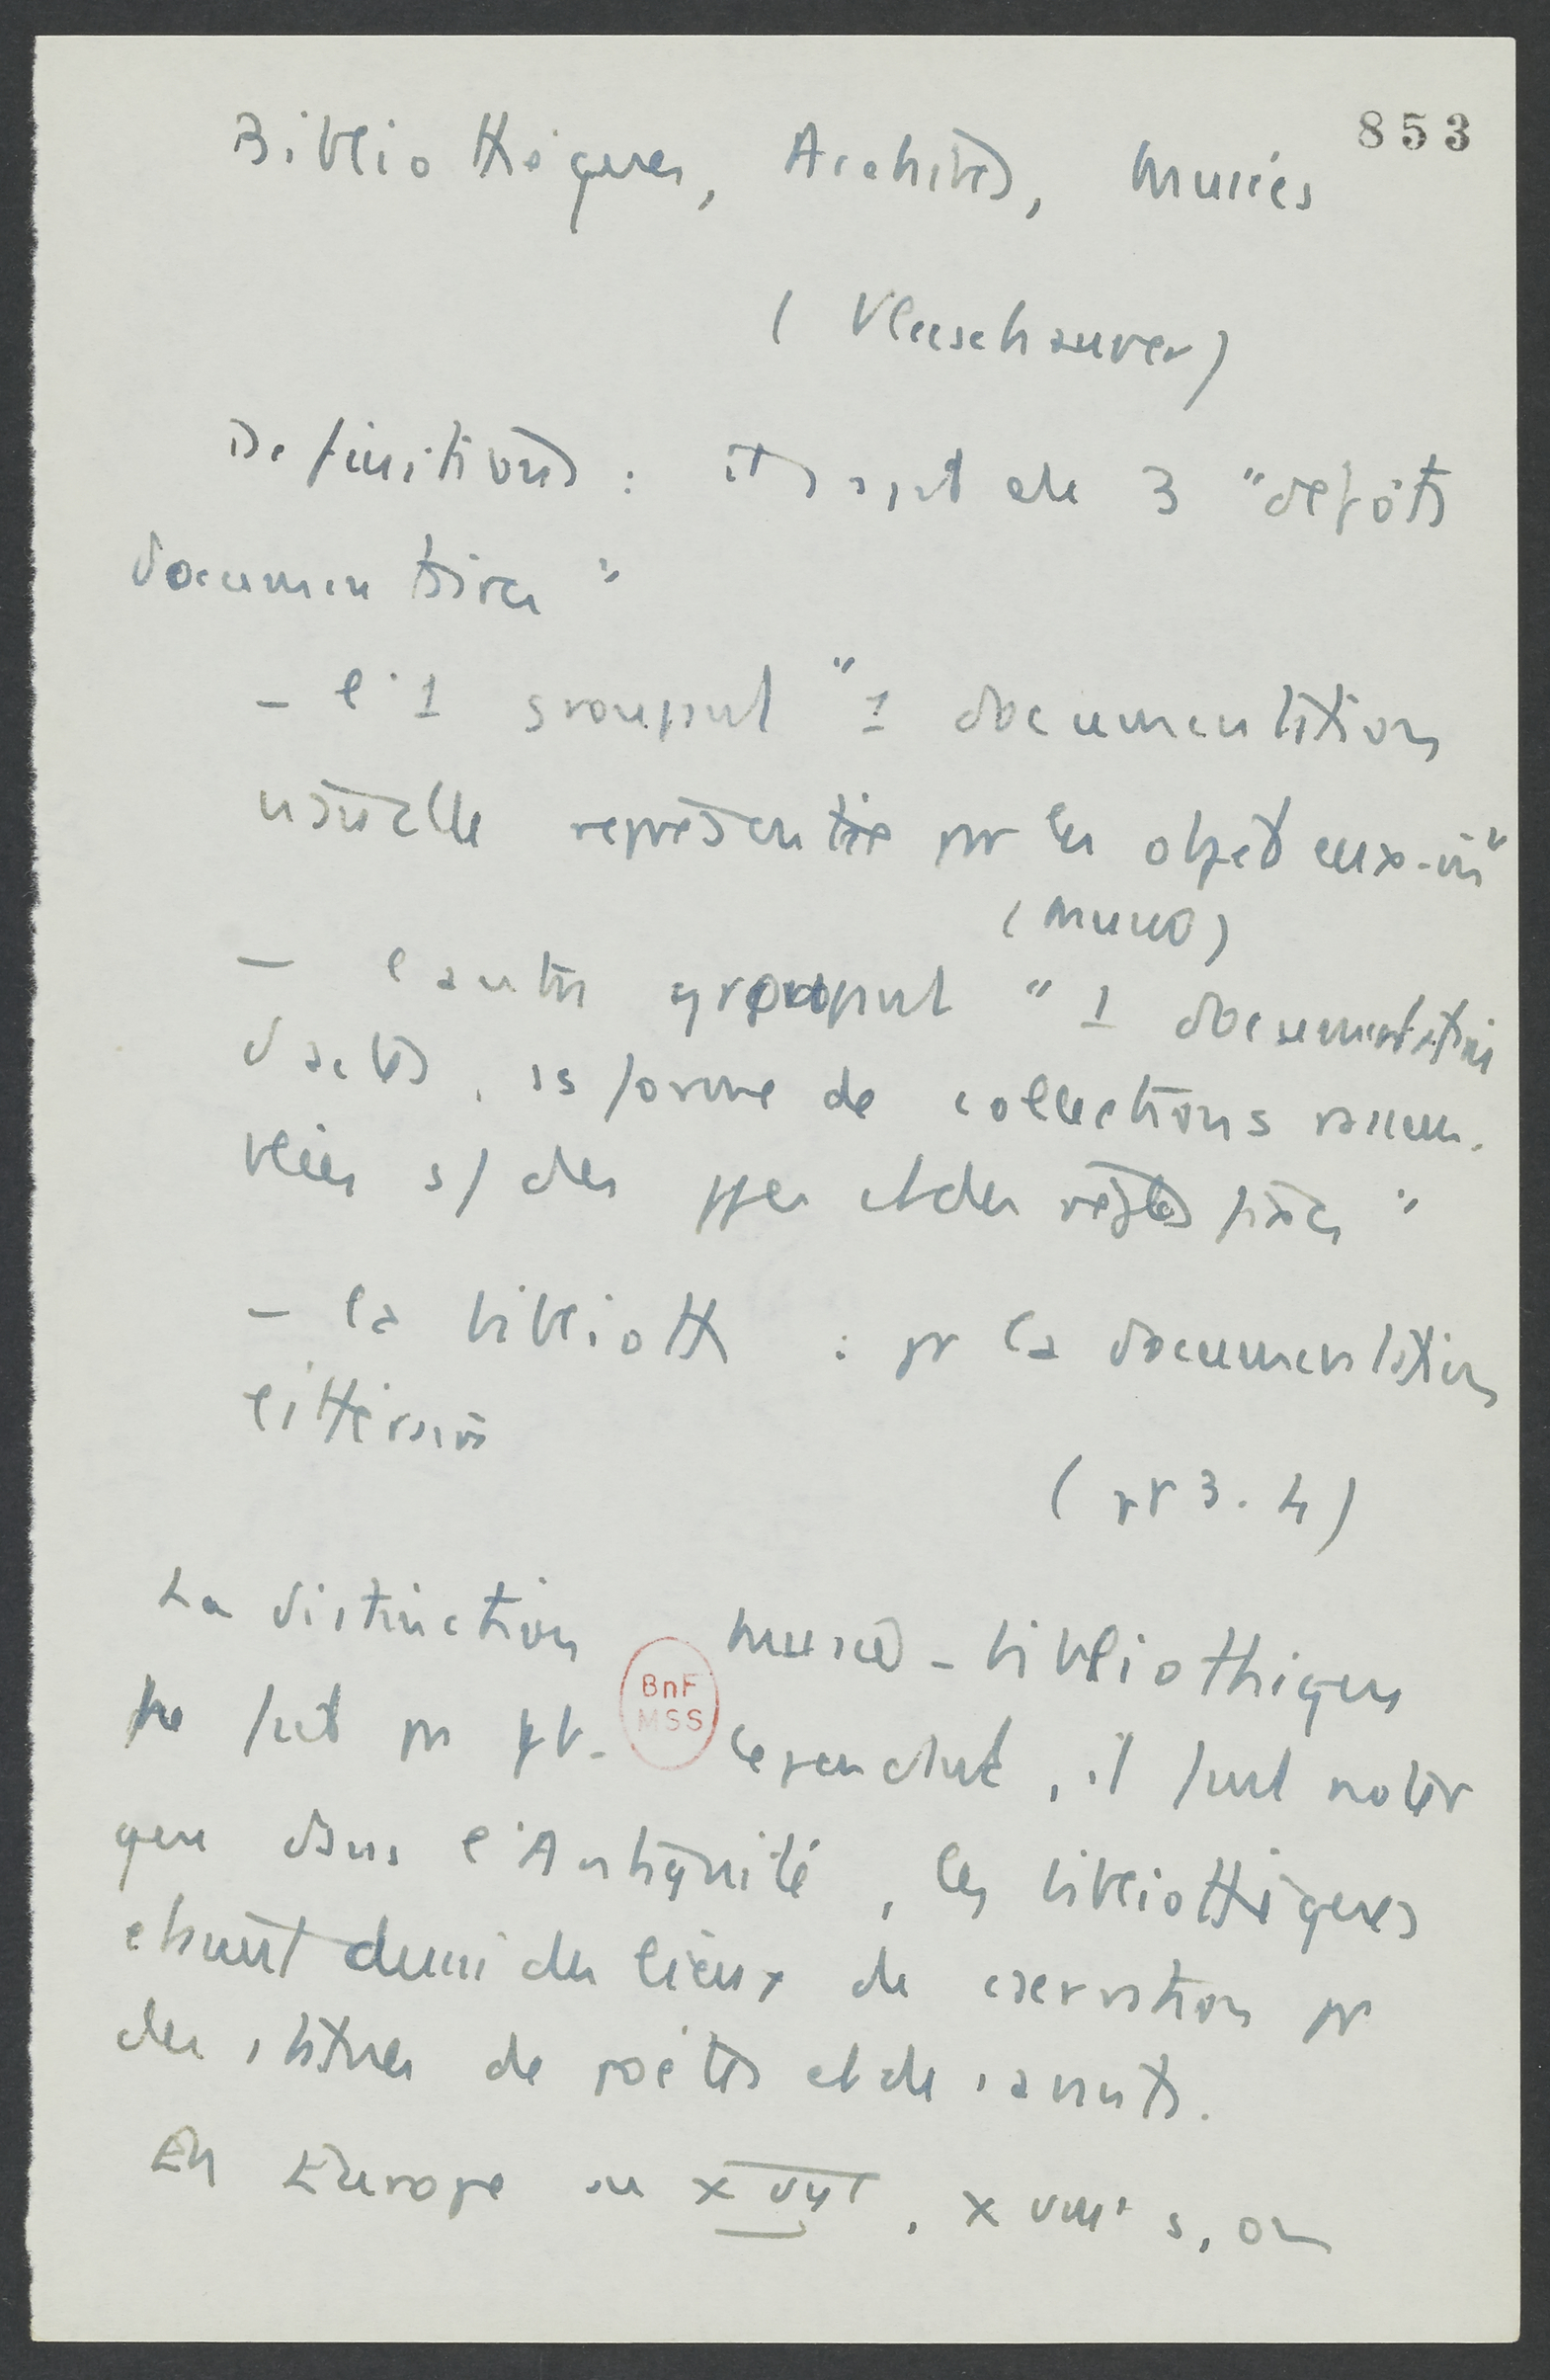 853
Bibliothèques, Archives, Musées
(Vleeschauwer)
Définitions : ils sont des 3 "dépôts
documentaires"
- l'1 groupant "1 documentation
usuelle représentée par les objets eux-m̄"
(musée)
- l'autre groupant "1 documentation
d'actes, ss forme de collections rassem-
blées s/ des ppes et des règles fixes"
- la biblioth : pr la documentation
littéraire
(pp 3.4)
La distinction musées - bibliothèques
ne fait pas pb.
BnF
MSS
Cependant, il faut noter
que dans l'Antiquité, les bibliothèques
étaient aussi des lieux de cservation pr
des statues de poètes et de savants.
En Europe au XVIIe, XVIIIe s, on